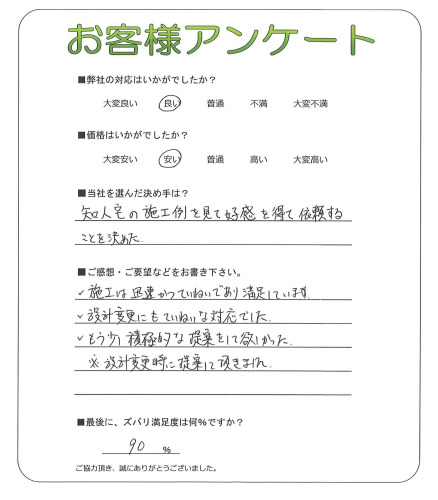 お客様アンケート
■弊社の対応はいかがでしたか？
大変良い 良い 普通 不満 大変不満
■価格はいかがでしたか？
大変安い 安い 普通 高い 大変高い
■当社を選んだ決め手は？
知人宅の施工例を見て好感を得て依頼する
ことを決めた.
■ご感想・ご要望などをお書き下さい。
✓施工は迅速かつていねいであり満足しています.
✓設計変更にもていねいな対応でした.
✓もう少し積極的な提案をして欲しかった.
※設計変更時に提案して頂きました.
■最後に、ズバリ満足度は何%ですか？
90 %
ご協力頂き、誠にありがとうございました。